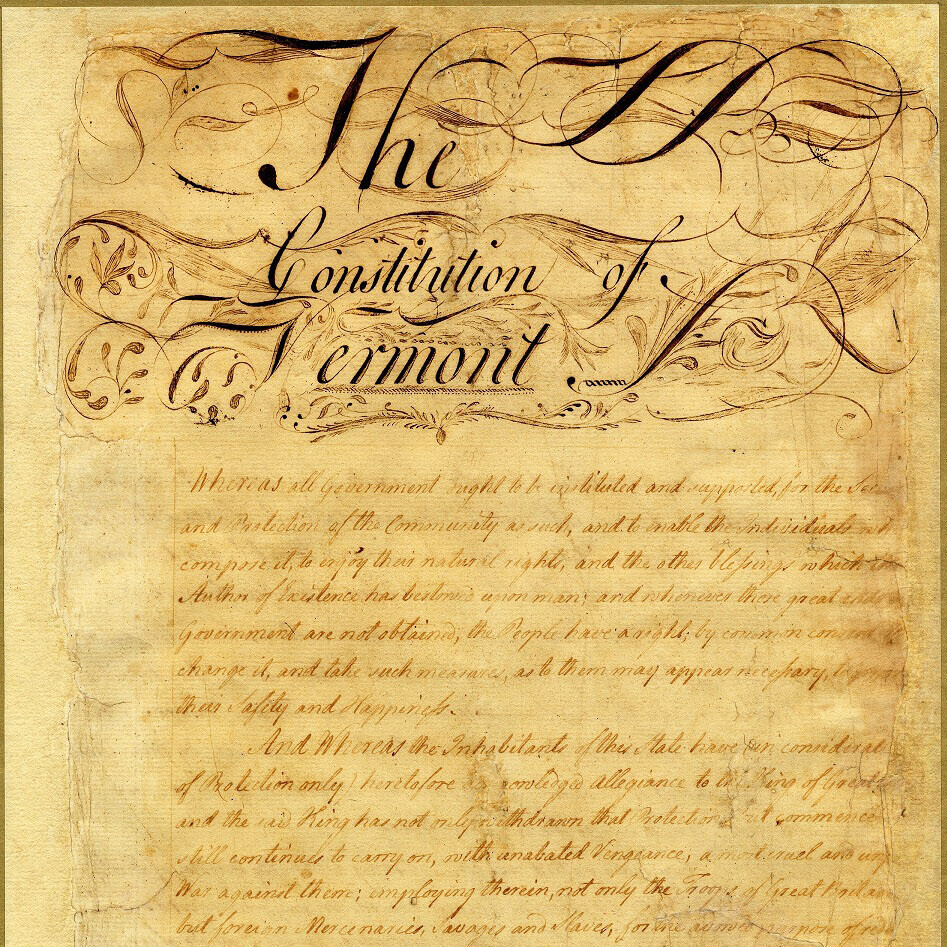 The
Constitution of
Vermont
Whereas all Government ought to be instituted and supported, for the
and Protection of the Community as such, and to enable the Individuals
compose it, to enjoy their natural rights, and the other blessings which the
Author of Existence has bestowed upon man; and whenever these great ends
Government are not obtained, the People have a right, by common consent
change it, and take such measures, as to them may appear necessary, to
their Safety and Happiness.
And Whereas the Inhabitants of this State have (in considerat
of Protection only) heretofore acknowledged allegiance to the King of Great
and the said King has not only withdrawn that Protection but commence
still continues to carry on, with unabated Vengeance, a most cruel and un
War against them; employing therein, not only the Troops of Great Britain
but foreign Mercenaries, Savages and Slaves, for the avowed purpose of